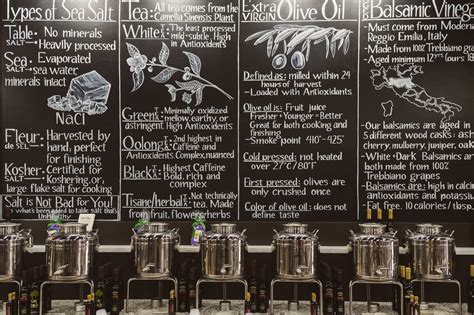 Types of Sea Salt
Table: No minerals
SALT → Heavily processed
Sea: Evaporated
SALT → sea water
minerals intact
NaCl
Fleur: Harvested by
de SEL → hand, perfect
for finishing
Kosher: Certified for
SALT → Koshering, or
large flake salt for cooking
Salt is Not Bad for You!
it's what's been added to table salt that's
Unhealthy
Tea: All tea comes from the
Camelia Sinensis Plant
White: The least processed
mild, subtle, High in
Antioxidents
Green: Minimally oxidized
mellow, earthy, or
astringent. High Antioxidents
Oolong: 2nd highest in
Caffeine and
Antioxidents Complex, nuanced
Black: Highest Caffeine
Bold, rich and
complex
Tisane/herbal: Not technically
tea. Made
from fruit, flowers, herbs
EXTRA
VIRGIN Olive Oil
Defined as: milled within 24
hours of harvest
-Loaded with Antioxidents
Olive oil is: Fruit juice
- Fresher + Younger = Better
- Great for both cooking
and finishing
-Smoke point 410° - 425°
Cold pressed: not heated
over 27°C/80°F
First pressed: olives are
only crushed once
Color of olive oil: does not
define taste
Balsamic Vinega
- Must come from Modena
Reggio Emilia, Italy
- Made from 100%
Trebbiano
- Aged minimum 12 yrs
- Balsamics are aged in
different wood casks:
cherry, mulberry, juniper,
- White + Dark Balsamics
both made from 100%
Trebbiano grapes
- Balsamics are: high in
antioxidants and
potassium
- Fat free, 10 calories / tbsp.